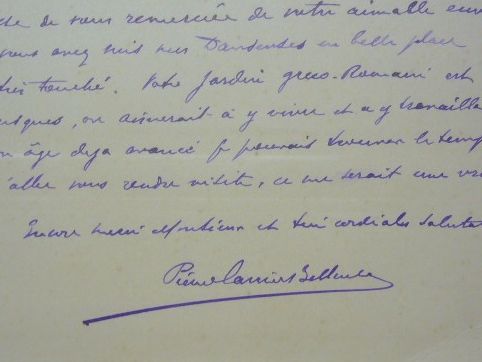 de vous remercier de votre aimable
vous avez mis mes Danseuses en belle place
très touché. Votre Jardin greco-Romain est
on aimerait à y vivre et a y travaille
âge deja avancé je pourrais trouver le temp
d'aller vous rendre visite, ce me serait une
Encore merci Monsieur et très cordiales saluta
Pierre Carrier Belleuse